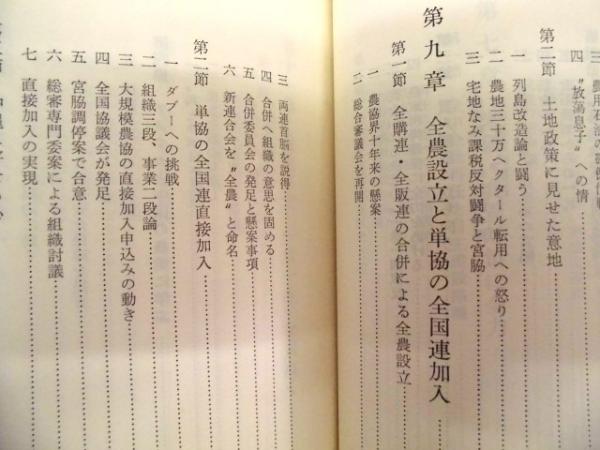 四 “放蕩息子”への情
第二節 土地政策に見せた意地
一 列島改造論と闘う
二 農地三十万ヘクタール転用への怒り
三 宅地なみ課税反対闘争と宮脇
第九章 全農設立と単協の全国連加入
第一節 全購連・全販連の合併による全農設立
一 農協界十年来の懸案
二 総合審議会を再開
三 両連首脳を説得
四 合併へ組織の意思を固める
五 合併委員会の発足と懸案事項
六 新連合会を“全農”と命名
第二節 単協の全国連直接加入
一 タブーへの挑戦
二 組織三段、事業二段論
三 大規模農協の直接加入申込みの動き
四 全国協議会が発足
五 宮脇調停案で合意
六 総審専門委案による組織討議
七 直接加入の実現